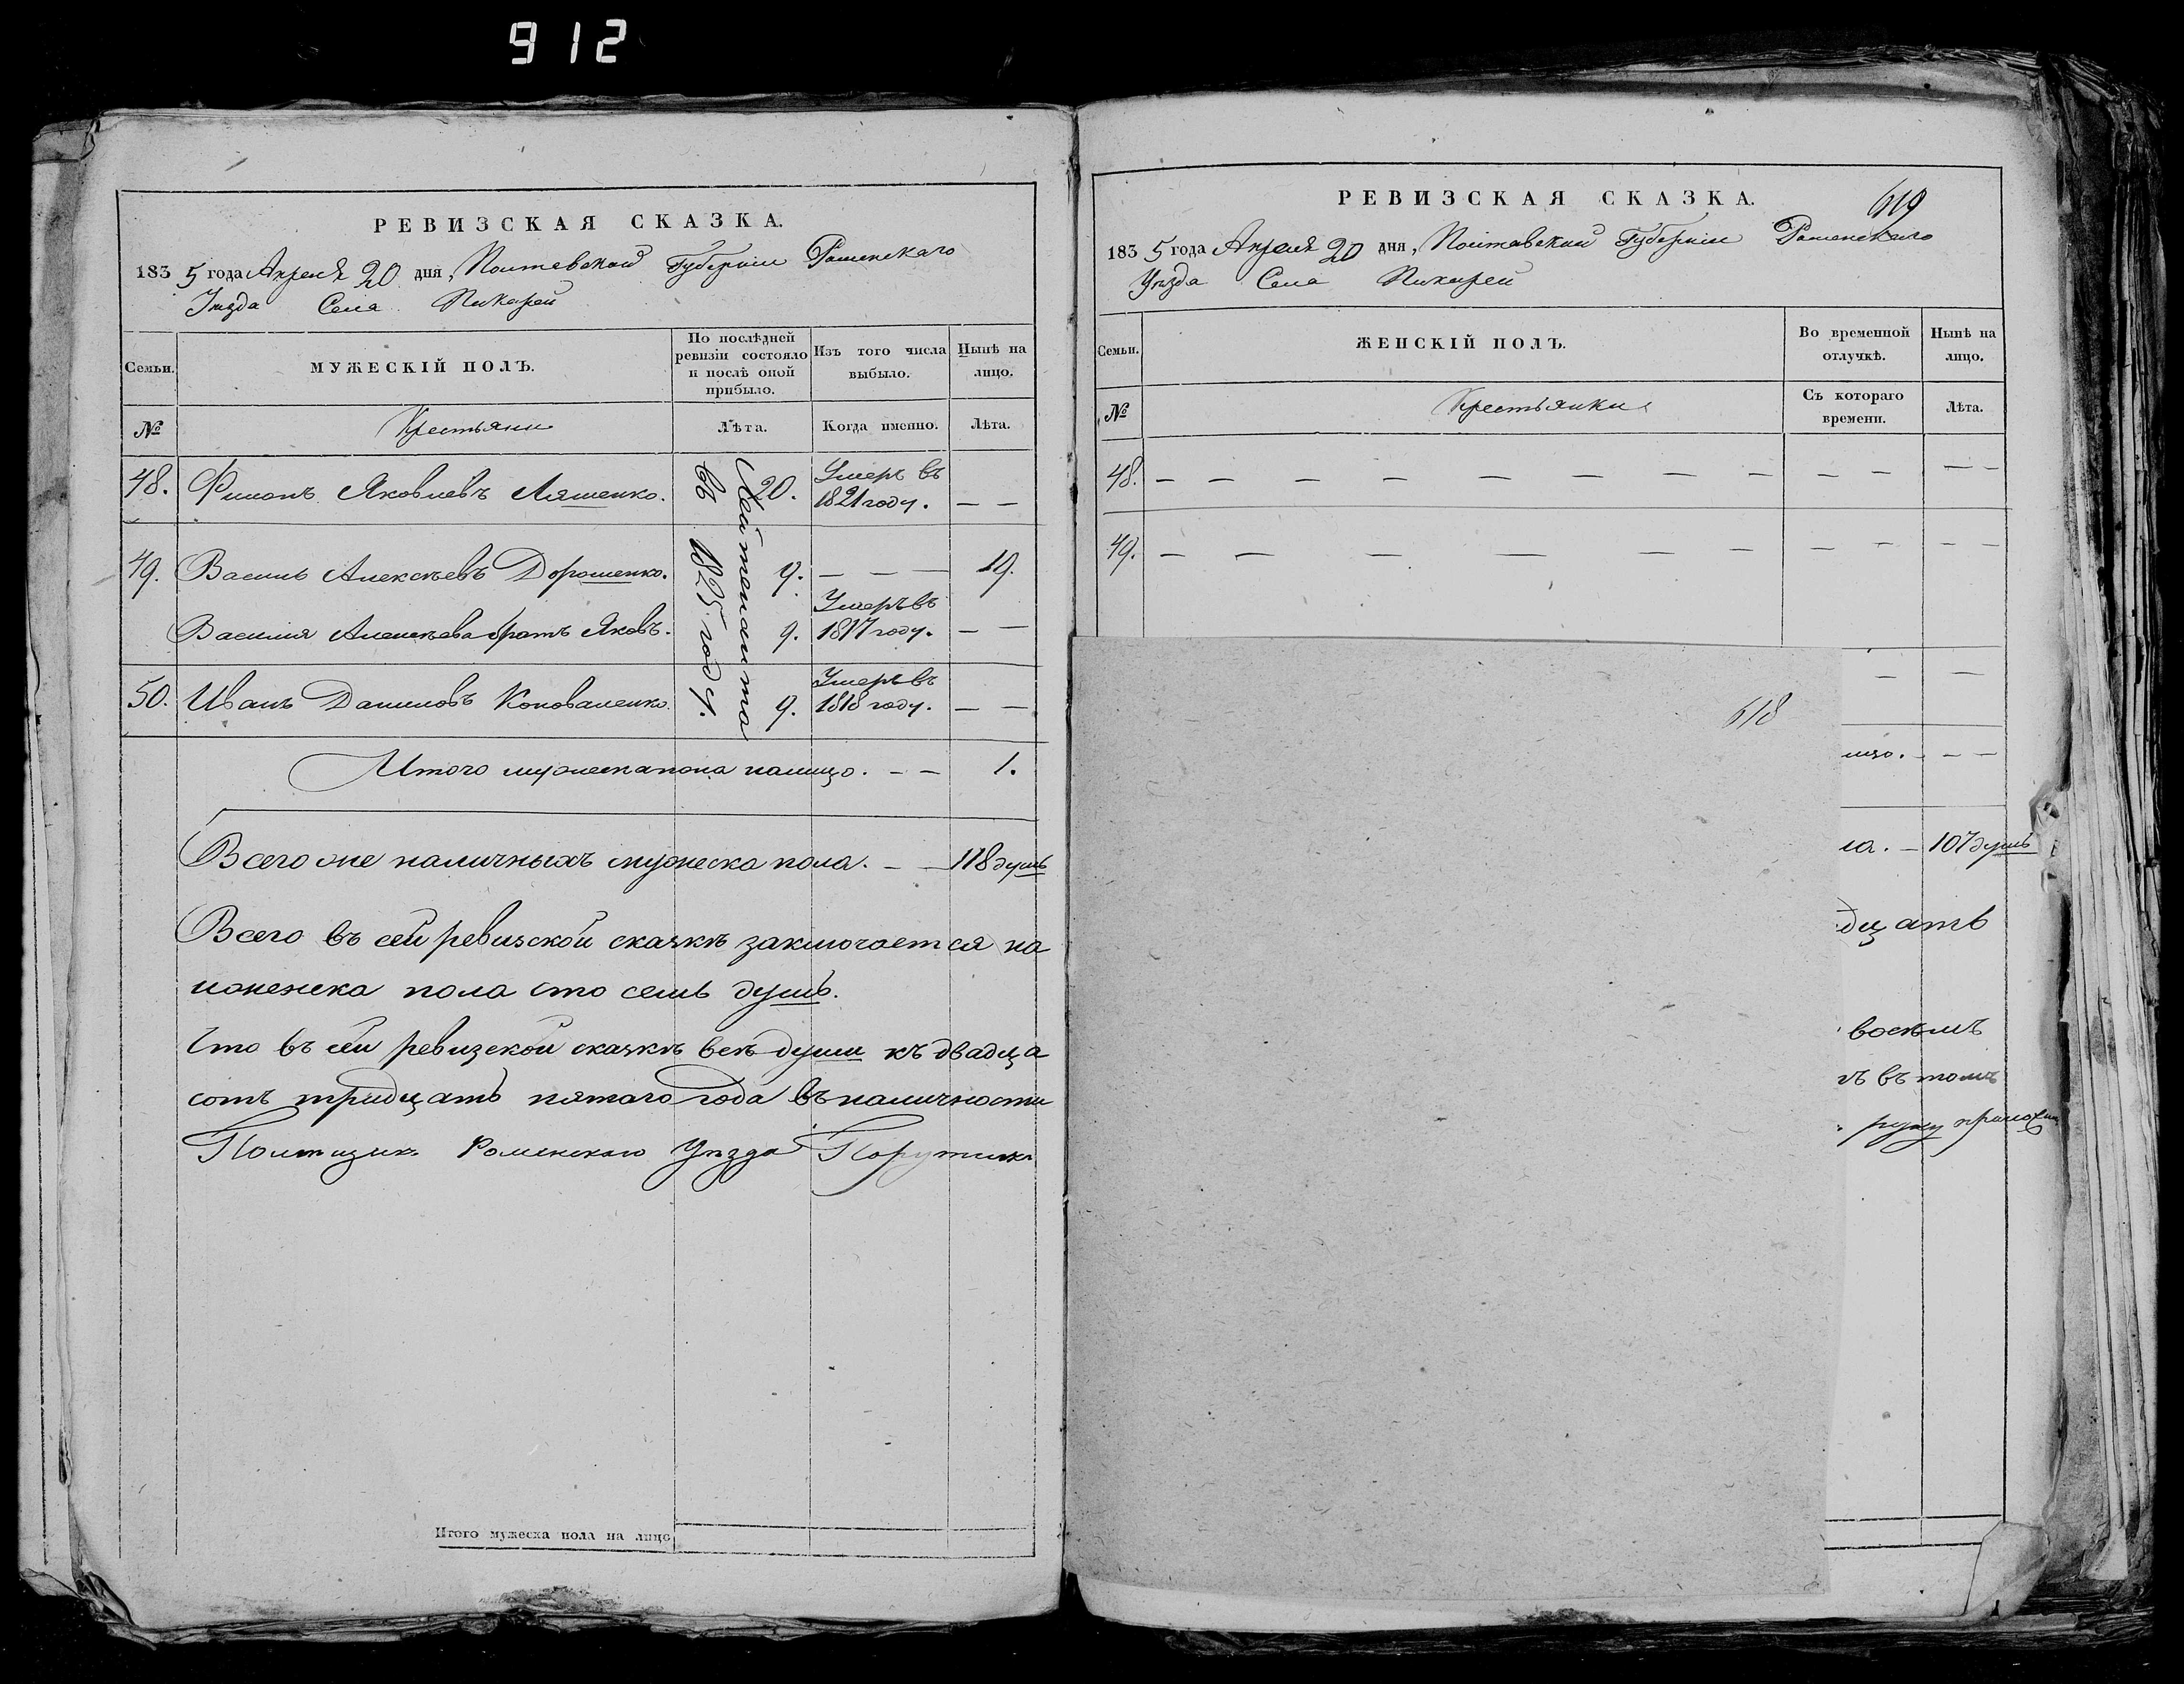 912
РЕВИЗСКАЯ СКАЗКА.
1835 года Апреля 20 дня, Полтавской Губернiи Роменскаго
Уѣзда Села Пикарей
Семьи.
МУЖЕСКIЙ ПОЛЪ.
По послѣдней ревизiи состояло и послѣ оной прибыло.
Изъ того числа выбыло.
Нынѣ на лицо.
№
Крестьяни
Лѣта.
Когда именно.
Лѣта.
48. Филипъ Яковлевъ Ляшенко. 20. Умеръ въ 1821 году. — —
49. Василь Алексѣевъ Дорошенко. 9. — — — 19.
Василiя Алексѣева братъ Яковъ. 9. Умеръ въ 1817 году. — —
50. Иванъ Даниловъ Коноваленко. 9. Умеръ въ 1818 году. — —
въ 1825 году.
Итого мужеска пола налицо. — — 1.
Всего же наличныхъ мужеска пола. — — 118 душъ
Всего въ сей ревизской сказкѣ заключается на
женска пола сто семь душъ.
Что въ сей ревизской сказкѣ всѣ души къ двадца
сотъ тридцать пятаго года въ наличности
Помѣщикъ Роменскаго Уѣзда Порутчикъ
Итого мужеска пола на лицо
РЕВИЗСКАЯ СКАЗКА.
619
1835 года Апреля 20 дня, Полтавской Губернiи Роменскаго
Уѣзда Села Пикарей
Семьи.
ЖЕНСКIЙ ПОЛЪ.
Во временной отлучкѣ.
Нынѣ на лицо.
№
Крестьянки
Съ котораго времени.
Лѣта.
48. — — — — — — — — — — — —
49. — — — — — — — — — —
— —
618
лицо. — — —
ла. — 107 душъ
дцать
восѣмъ
ъ въ томъ
руку приложи